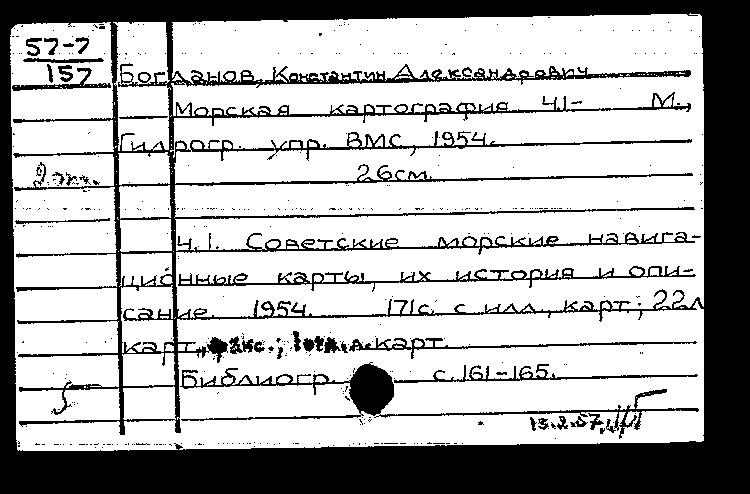 57-7
157
Богданов, Константин Александрович
Морская картография Ч.1- М.,
Гидрогр. упр. ВМС, 1954.
2 экз.
26см.
Ч.1. Советские морские навига-
ционные карты, их история и опи-
сание. 1954. 171с. с илл., карт.; 22л
карт., факс.; л.карт.
Библиогр. с.161-165.
13.2.57.